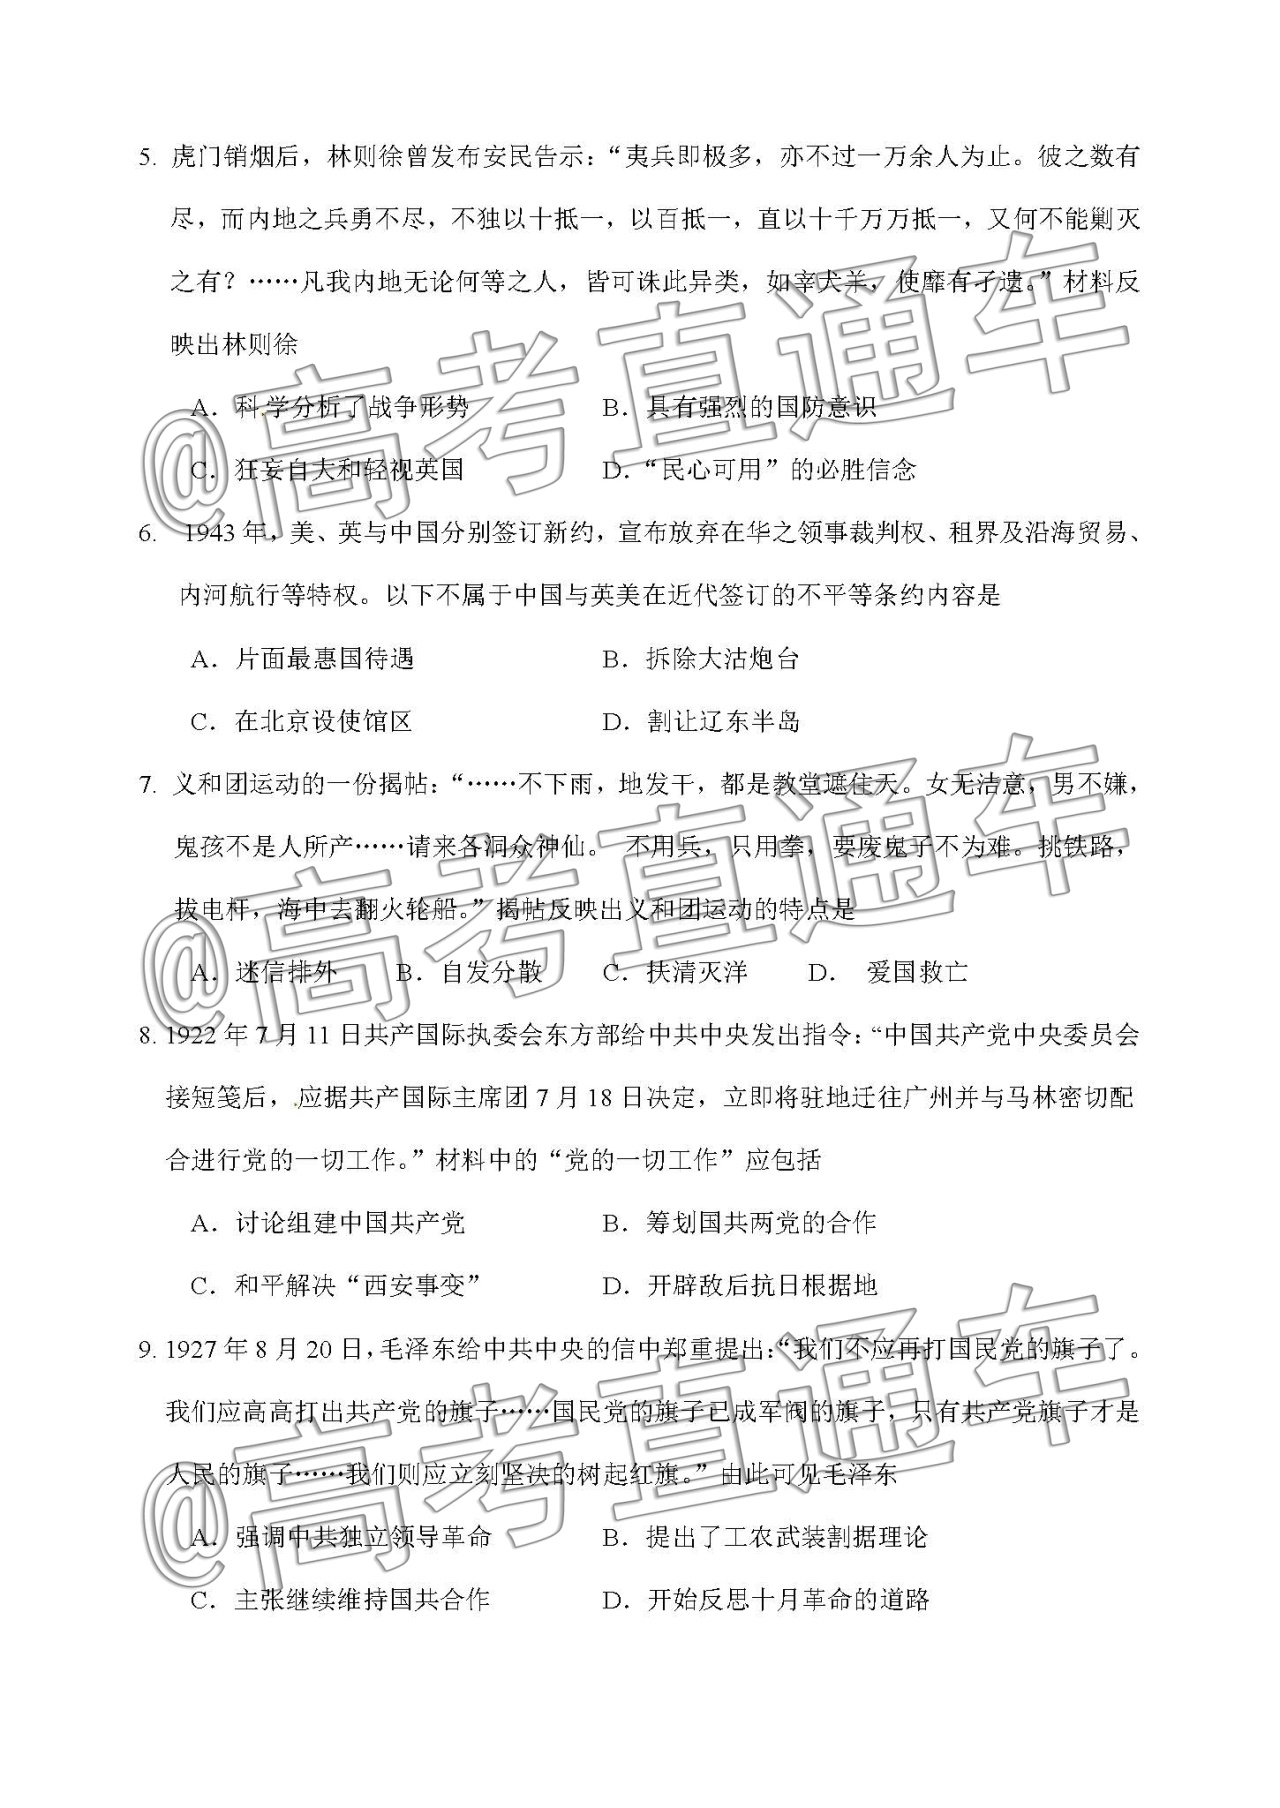 5. 虎门销烟后，林则徐曾发布安民告示：“夷兵即极多，亦不过一万余人为止。彼之数有
尽，而内地之兵勇不尽，不独以十抵一，以百抵一，直以十千万万抵一，又何不能剿灭
之有？……凡我内地无论何等之人，皆可诛此异类，如宰犬羊，使靡有孑遗。”材料反
映出林则徐
A．科学分析了战争形势 B．具有强烈的国防意识
C．狂妄自大和轻视英国 D．“民心可用”的必胜信念
6. 1943 年，美、英与中国分别签订新约，宣布放弃在华之领事裁判权、租界及沿海贸易、
内河航行等特权。以下不属于中国与英美在近代签订的不平等条约内容是
A．片面最惠国待遇 B．拆除大沽炮台
C．在北京设使馆区 D．割让辽东半岛
7. 义和团运动的一份揭帖：“……不下雨，地发干，都是教堂遮住天。女无洁意，男不嫌，
鬼孩不是人所产……请来各洞众神仙。 不用兵，只用拳，要废鬼子不为难。挑铁路，
拔电杆，海中去翻火轮船。”揭帖反映出义和团运动的特点是
A．迷信排外 B．自发分散 C．扶清灭洋 D． 爱国救亡
8. 1922 年 7 月 11 日共产国际执委会东方部给中共中央发出指令：“中国共产党中央委员会
接短笺后，应据共产国际主席团 7 月 18 日决定，立即将驻地迁往广州并与马林密切配
合进行党的一切工作。”材料中的“党的一切工作”应包括
A．讨论组建中国共产党 B．筹划国共两党的合作
C．和平解决“西安事变” D．开辟敌后抗日根据地
9. 1927 年 8 月 20 日，毛泽东给中共中央的信中郑重提出：“我们不应再打国民党的旗子了。
我们应高高打出共产党的旗子……国民党的旗子已成军阀的旗子，只有共产党旗子才是
人民的旗子……我们则应立刻坚决的树起红旗。”由此可见毛泽东
A．强调中共独立领导革命 B．提出了工农武装割据理论
C．主张继续维持国共合作 D．开始反思十月革命的道路
@高考直通车
@高考直通车
@高考直通车